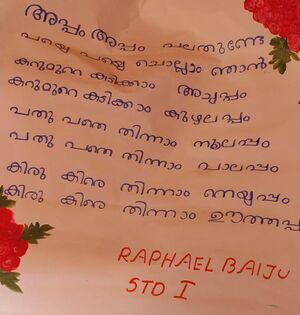 അപ്പം അപ്പം പലതുണ്ടേ
പയ്യെ പയ്യെ ചൊല്ലാം ഞാൻ
കറുമുറെ കടിക്കാം അച്ചപ്പം
കറുമുറെ കടിക്കാം കുഴലപ്പം
പതു പതെ തിന്നാം നൂലപ്പം
പതു പതെ തിന്നാം പാലപ്പം
കിരു കിരെ തിന്നാം നെയ്യപ്പം
കിരു കിരെ തിന്നാം ഊത്തപ്പ
RAPHAEL BAIJU
STD I